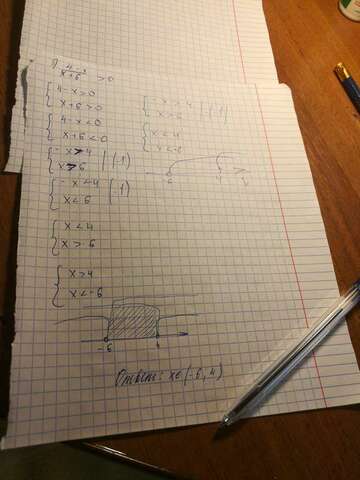 4-x / x+6 >0
{ 4-x>0
x+6>0
{ 4-x<0
x+6<0
{ -x>4 | (-1)
x>6
{ -x<4 | (-1)
x<6
{ x<4
x>6
{ x>4
x<-6
{ -x>4 | (-1)
x>6
{ x<4
x<-6
-6 4
Ответ: x∈(-6, 4)